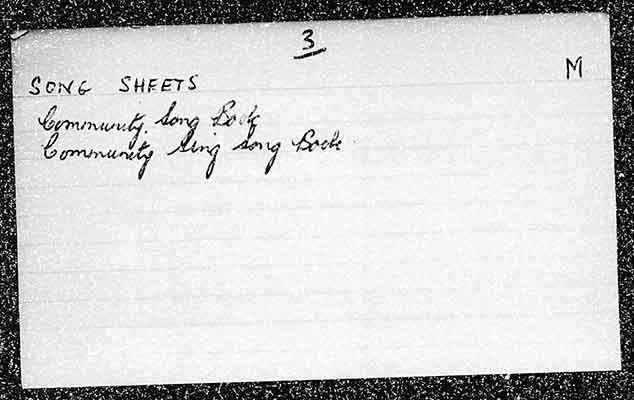 3
M
SONG SHEETS
Community Song Book
Community Sing Song Book